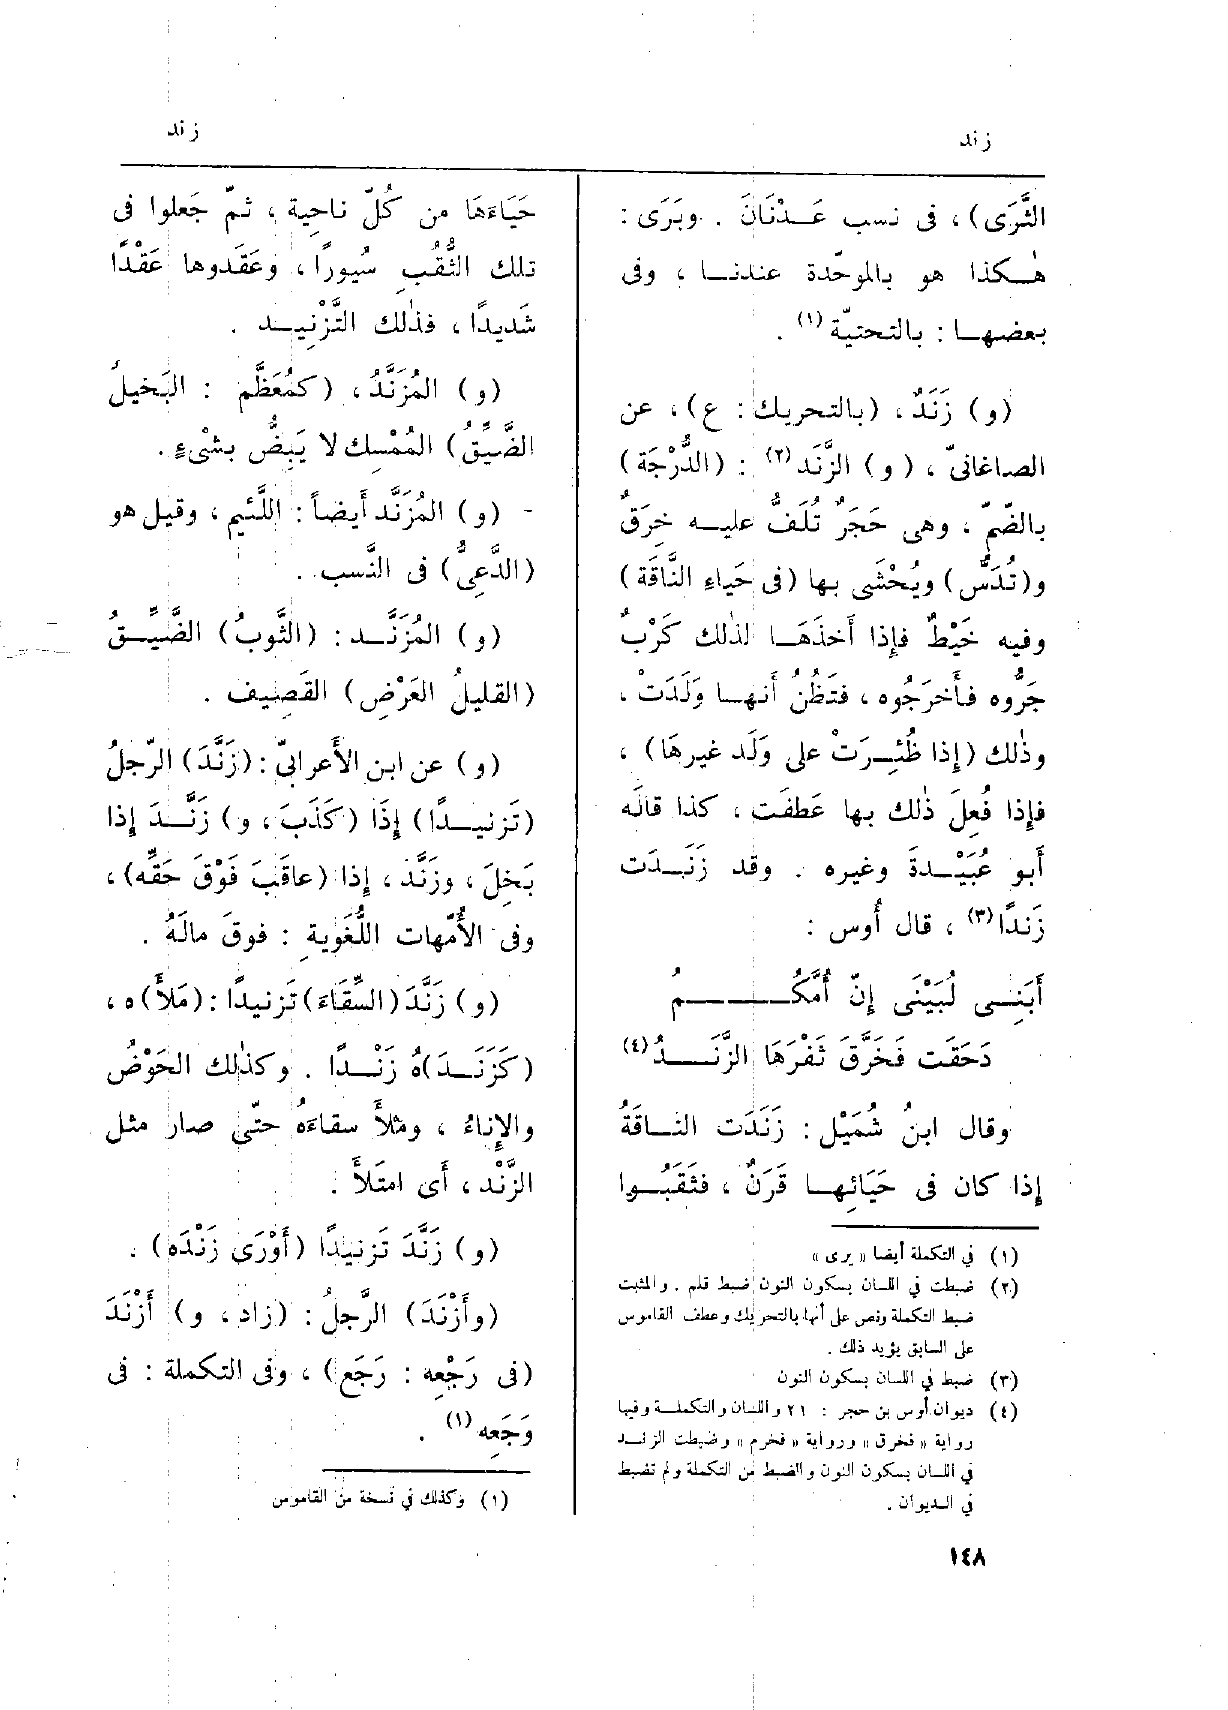 زند
زند
الثَّرَى) ، فى نسب عَـدْنَانَ . وبَرَى :
هٰـكذا هو بالموحّدة عندنـا ، وفى
بعضهـا : بالتحتيّة (١) .
(و) زَنَدٌ ، (بالتحريك : ع) ، عن
الصاغانىّ ، (و) الزَّنَد (٢) : (الدُّرْجَة)
بالضّمّ ، وهى حَجَرٌ تُلَفُّ عليـه خِرَقٌ
و(تُدَسُّ) ويُحْشَى بها (فى حَياءِ النَّاقَة)
وفيه خَيْطٌ فإذا أخذَهَـا لذٰلك كَرْبٌ
جَرُّوه فأَخرَجُوه ، فتَظُنُّ أنهـا وَلَدَتْ ،
وذٰلك (إذا ظُئِـرَتْ على وَلَد غيرهَا) ،
فإذا فُعِلَ ذٰلك بها عَطفَت ، كذا قالَه
أبو عُبَيْـدةَ وغيره . وقد زَنَـدَت
زَندًا (٣) ، قال أَوس :
أَبَنِـى لُبَيْنَى إنّ أُمَّكُـــــمُ
دَحَقَت فَخَرَّقَ ثَفْرَهَا الزَّنَــدُ (٤)
وقال ابنُ شُمَيْل : زَنَدَت النـاقَةُ
إذا كان فى حَيَائهـا قَرَنٌ ، فثَقَبُـوا
(١) في التكملة أيضا « يرى »
(٢) ضبطت في اللسان بسكون النون ضبط قلم . والمثبت
ضبط التكملة ونص على أنها بالتحريك وعطف القاموس
على السابق يؤيد ذلك .
(٣) ضبط في اللسان بسكون النون
(٤) ديوان أوس بن حجر : ٢١ واللسان والتكملـة وفيها
رواية « فخرق » ورواية « فخرم » وضبطت الزنـد
في اللسان بسكون النون والضبط من التكملة ولم تضبط
في الـديوان .
حَيَاءَهَا من كُلّ ناحية ، ثمّ جَعلوا فى
تلك الثُّقَبِ سُيورًا ، وعَقَدوها عَقْدًا
شَديدًا ، فذٰلك التَّزْنِيـد .
(و) المُزَنَّدُ ، (كمُعَظَّم : البَخيلُ
الضَّيِّقُ) المُمْسِك لا يَبِضُّ بشْىءٍ .
(و) المُزَنَّد أَيضاً : اللَّئيم ، وقيل هو
(الدَّعِىُّ) فى النَّسب .
(و) المُزَنَّـد : (الثَّوبُ) الضَّيِّـقُ
(القليلُ العَرْض) القَصِيف .
(و) عن ابن الأَعرابىّ : (زَنَّدَ) الرّجلُ
(تَزنيـدًا) إذَا (كَذَبَ ، و) زَنَّـدَ إذا
بَخِلَ ، وزَنَّدَ ، إذا (عاقَبَ فَوْقَ حَقِّه) ،
وفى الأُمّهات اللُّغَوية : فوقَ مالَهُ .
(و) زَنَّدَ (السِّقَاءَ) تَزنيدًا : (مَلأَ)ه ،
(كَزَنَـد)هُ زَنْـدًا . وكذٰلك الحَوْضُ
والإناءُ ، ومَلأَ سقاءَهُ حتّى صار مثل
الزَّنْد ، أَى امتَلأَ .
(و) زَنَّدَ تَزنيدًا (أَوْرَى زَنْدَه) .
(وأَزْنَدَ) الرَّجلُ : (زاد ، و) أَزْنَدَ
(فى رَجْعِه : رَجَع) ، وفى التكملة : فى
وَجَعِه (١) .
(١) وكذلك في نسخة من القاموس
١٤٨